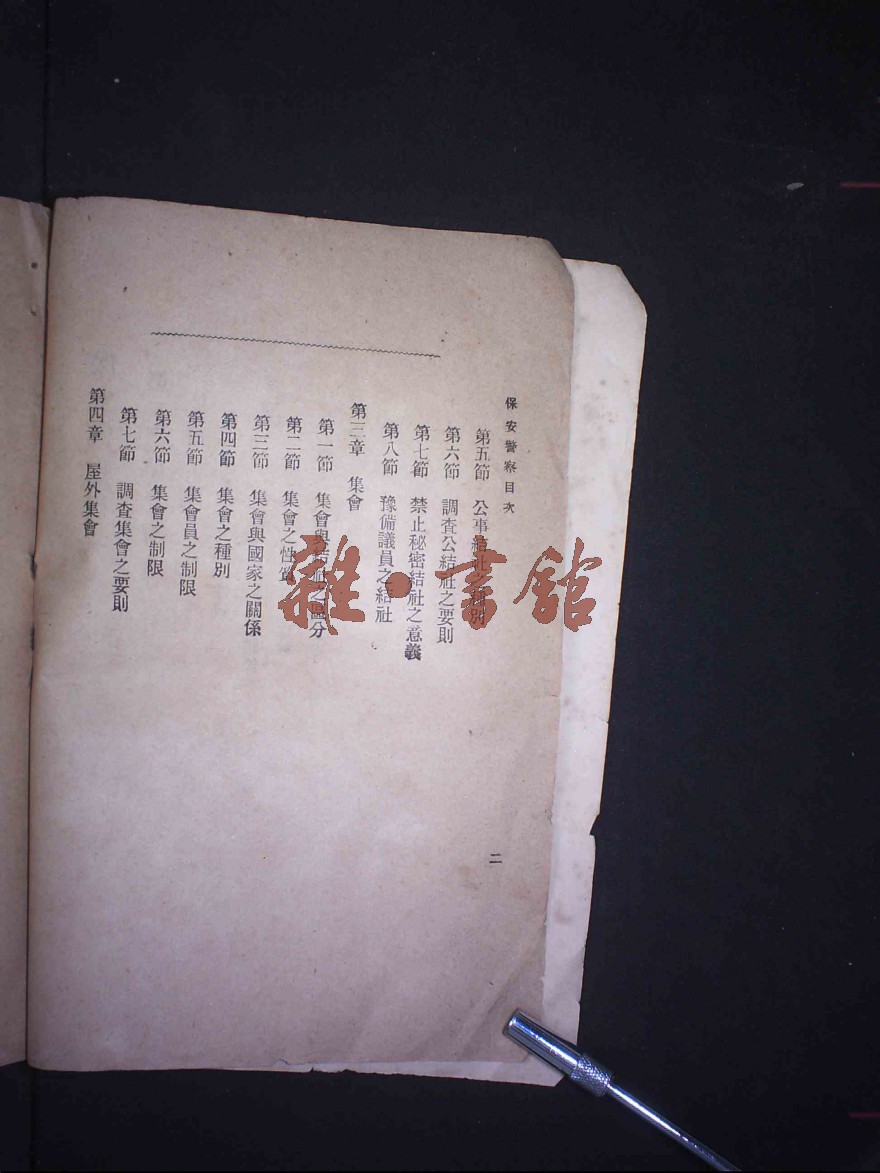 保安警察目次
第五節 公事結社之種別
第六節 調查公結社之要則
第七節 禁止秘密結社之意義
第八節 豫備議員之結社
第三章 集會
第一節 集會與結社之區分
第二節 集會之性質
第三節 集會與國家之關係
第四節 集會之種別
第五節 集會員之制限
第六節 集會之制限
第七節 調查集會之要則
第四章 屋外集會
二
雜·書館